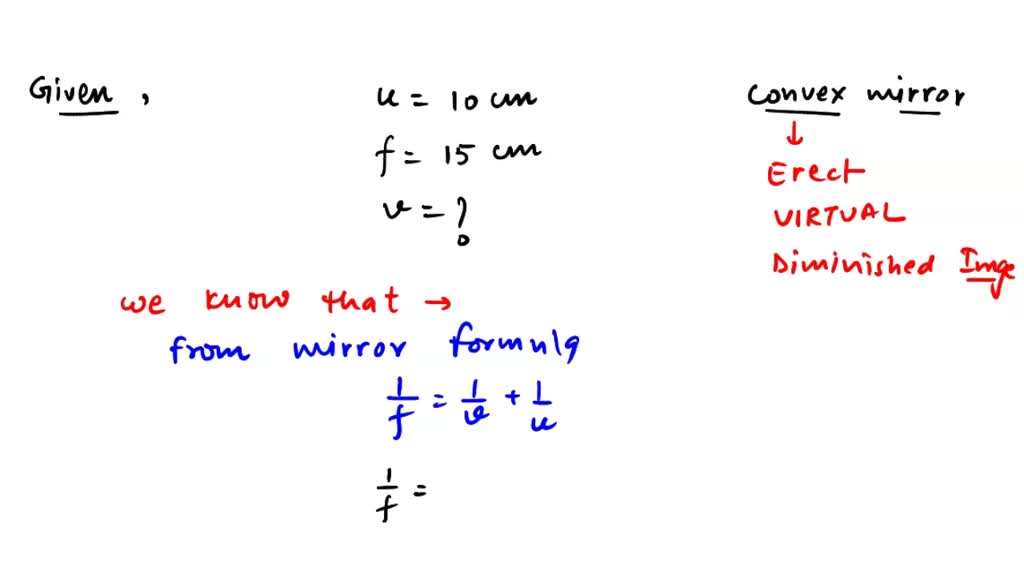 Given ,
u = 10 cm
f = 15 cm
v = ?
convex mirror
↓
Erect
VIRTUAL
Diminished Imge
we know that →
from mirror formula
1/f = 1/v + 1/u
1/f =